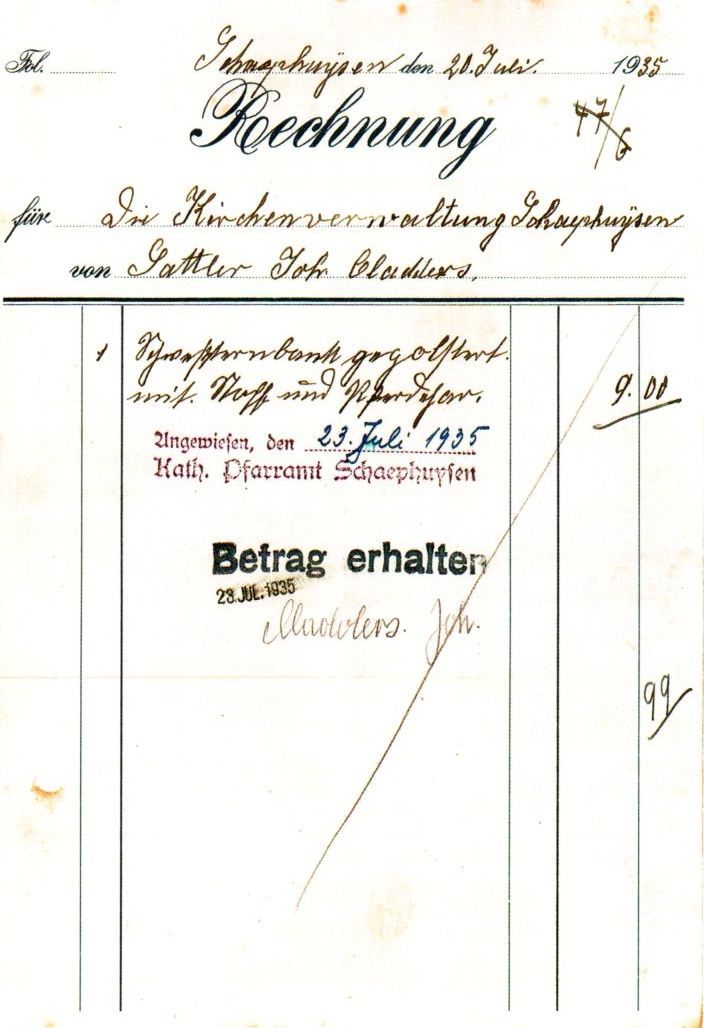 Fol. Schaephuysen den 20. Juli. 1935
Rechnung
47/6
für Die Kirchenverwaltung Schaephuysen
von Sattler Joh. Cladders.
1 Schwesternbank gepolstert.
mit. Stoff und Pferdehar. 9.00
Angewiesen, den 23. Juli 1935
Kath. Pfarramt Schaephuysen
Betrag erhalten
23. JUL. 1935
Cladders. Joh.
99